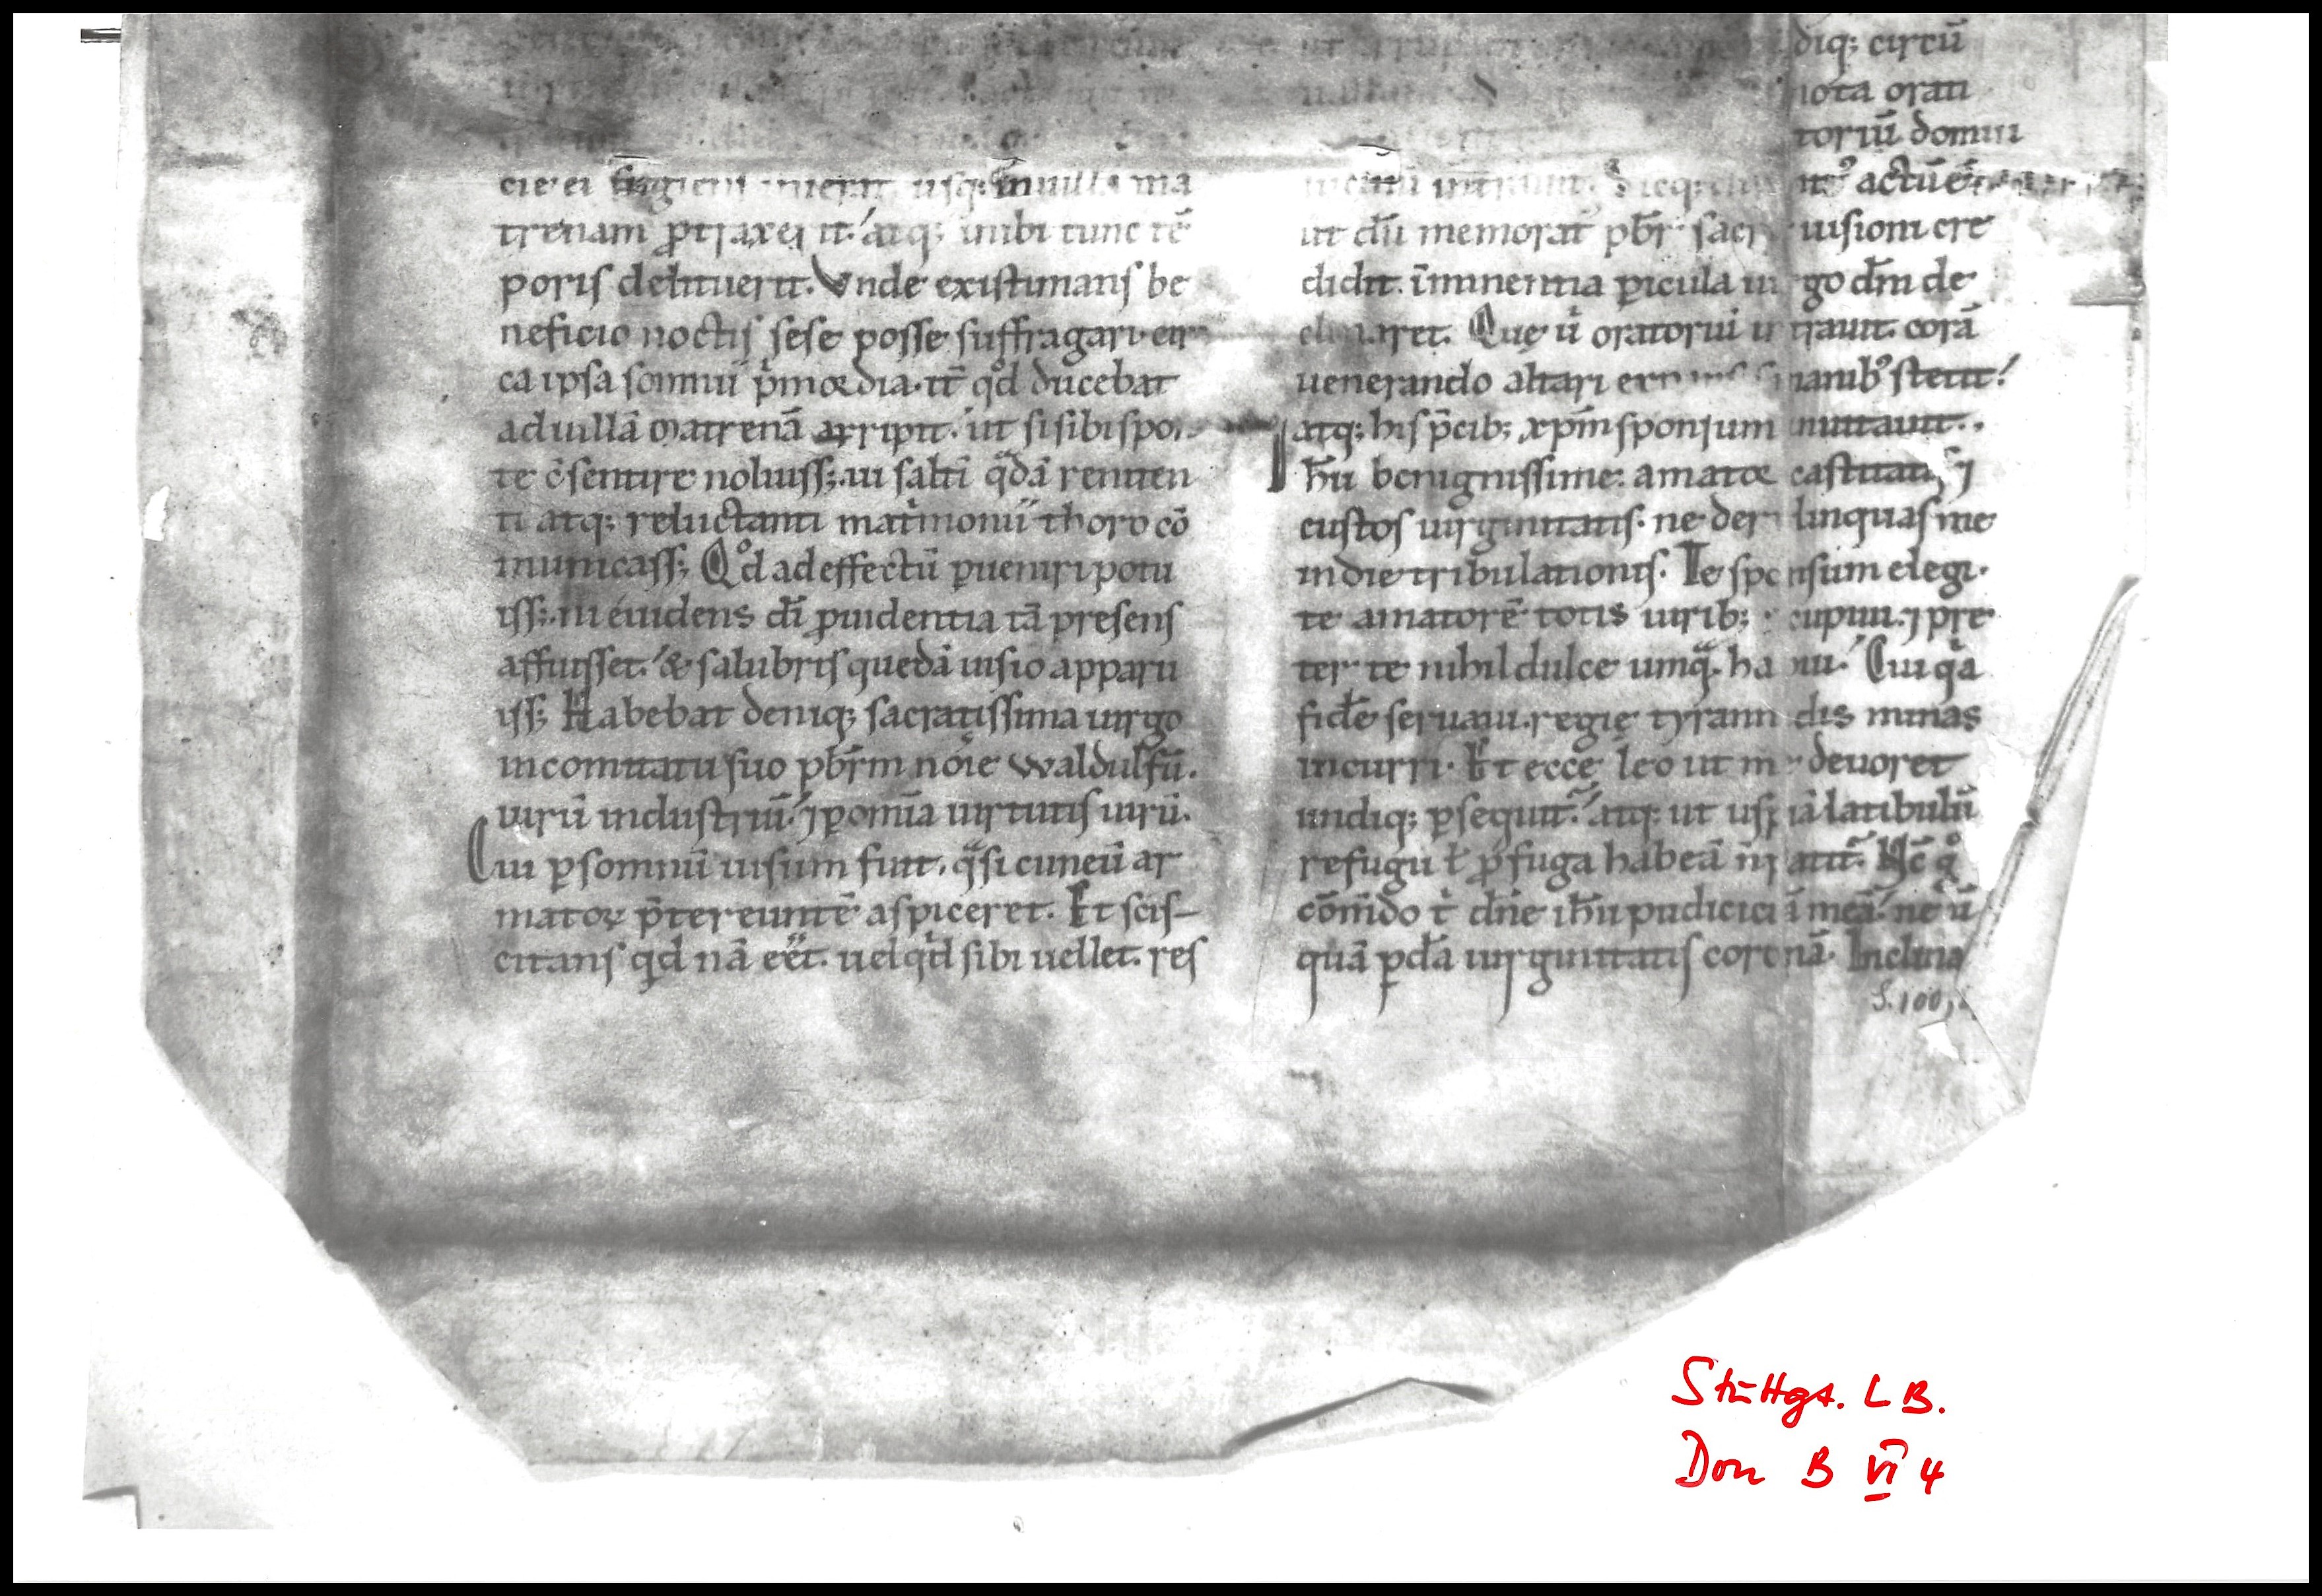 trenam ꝓtraxerit. atq; inibi tunc tē
poris delituerit. Vnde existimans be
neficio noctis sese posse suffragari cir
ca ipsa somnii pͥmordia. it̄ qd̊ ducebat
ad uillā matrenā arripit. ut si sibi spo
te c̄sentire noluiss; ui saltī qͣdā renuen
ti atq; reluctanti matͥmonii thoro cō
municass; Qd̊ ad effectū ꝑueniri potu
iss; ni euidens d̄i ꝓuidentia tā presens
affuisset. & salubris quedā uisio apparu
iss; Habebat deniq; sacratissima uirgo
in comitatu suo pb̄rm nōie Waldulfū.
uirū industriū. ⁊ ꝑ om̄ia uirtutis uirū.
Cui ꝑ somnū uisum fuit. qͣsi cuneū ar
matoꝝ p̄tereuntē aspiceret. Et scis-
citans qͥd nā eēt. uel qͥd sibi uellet. res
diq; circū
nota orati
toriū domini
actū
ut dū memorat pb̄r sacr uisioni cre
didit. īminentia ꝑicula uirgo dn̄m de
Que ū oratoriū intrauit. corā
uenerando altari manib; stetit.
atq; his p̄cib; xp̄m sponsum inuitauit.
Ih̄u benignissime. amator castitatis ⁊
custos uirginitatis. ne derelinquas me
in die tribulationis. Te sponsum elegi.
te amatorē totis uirib; cupiui. ⁊ pre
ter te nihil dulce umqͣ habui. Cui qͥa
fidē seruaui. regię tyrannidis minas
incurri. Et ecce leo ut me deuoret
undiq; ꝑsequit̄. atq; ut uspiā latibulū
refugii ł ꝓfuga habeā
cōm̄do tͥ dn̄e ih̄u pudiciciā meā. ne ū
quā ꝑdā uirginitatis coronā. Inclina
S. 100,
Stuttgt. LB.
Don B VI 4